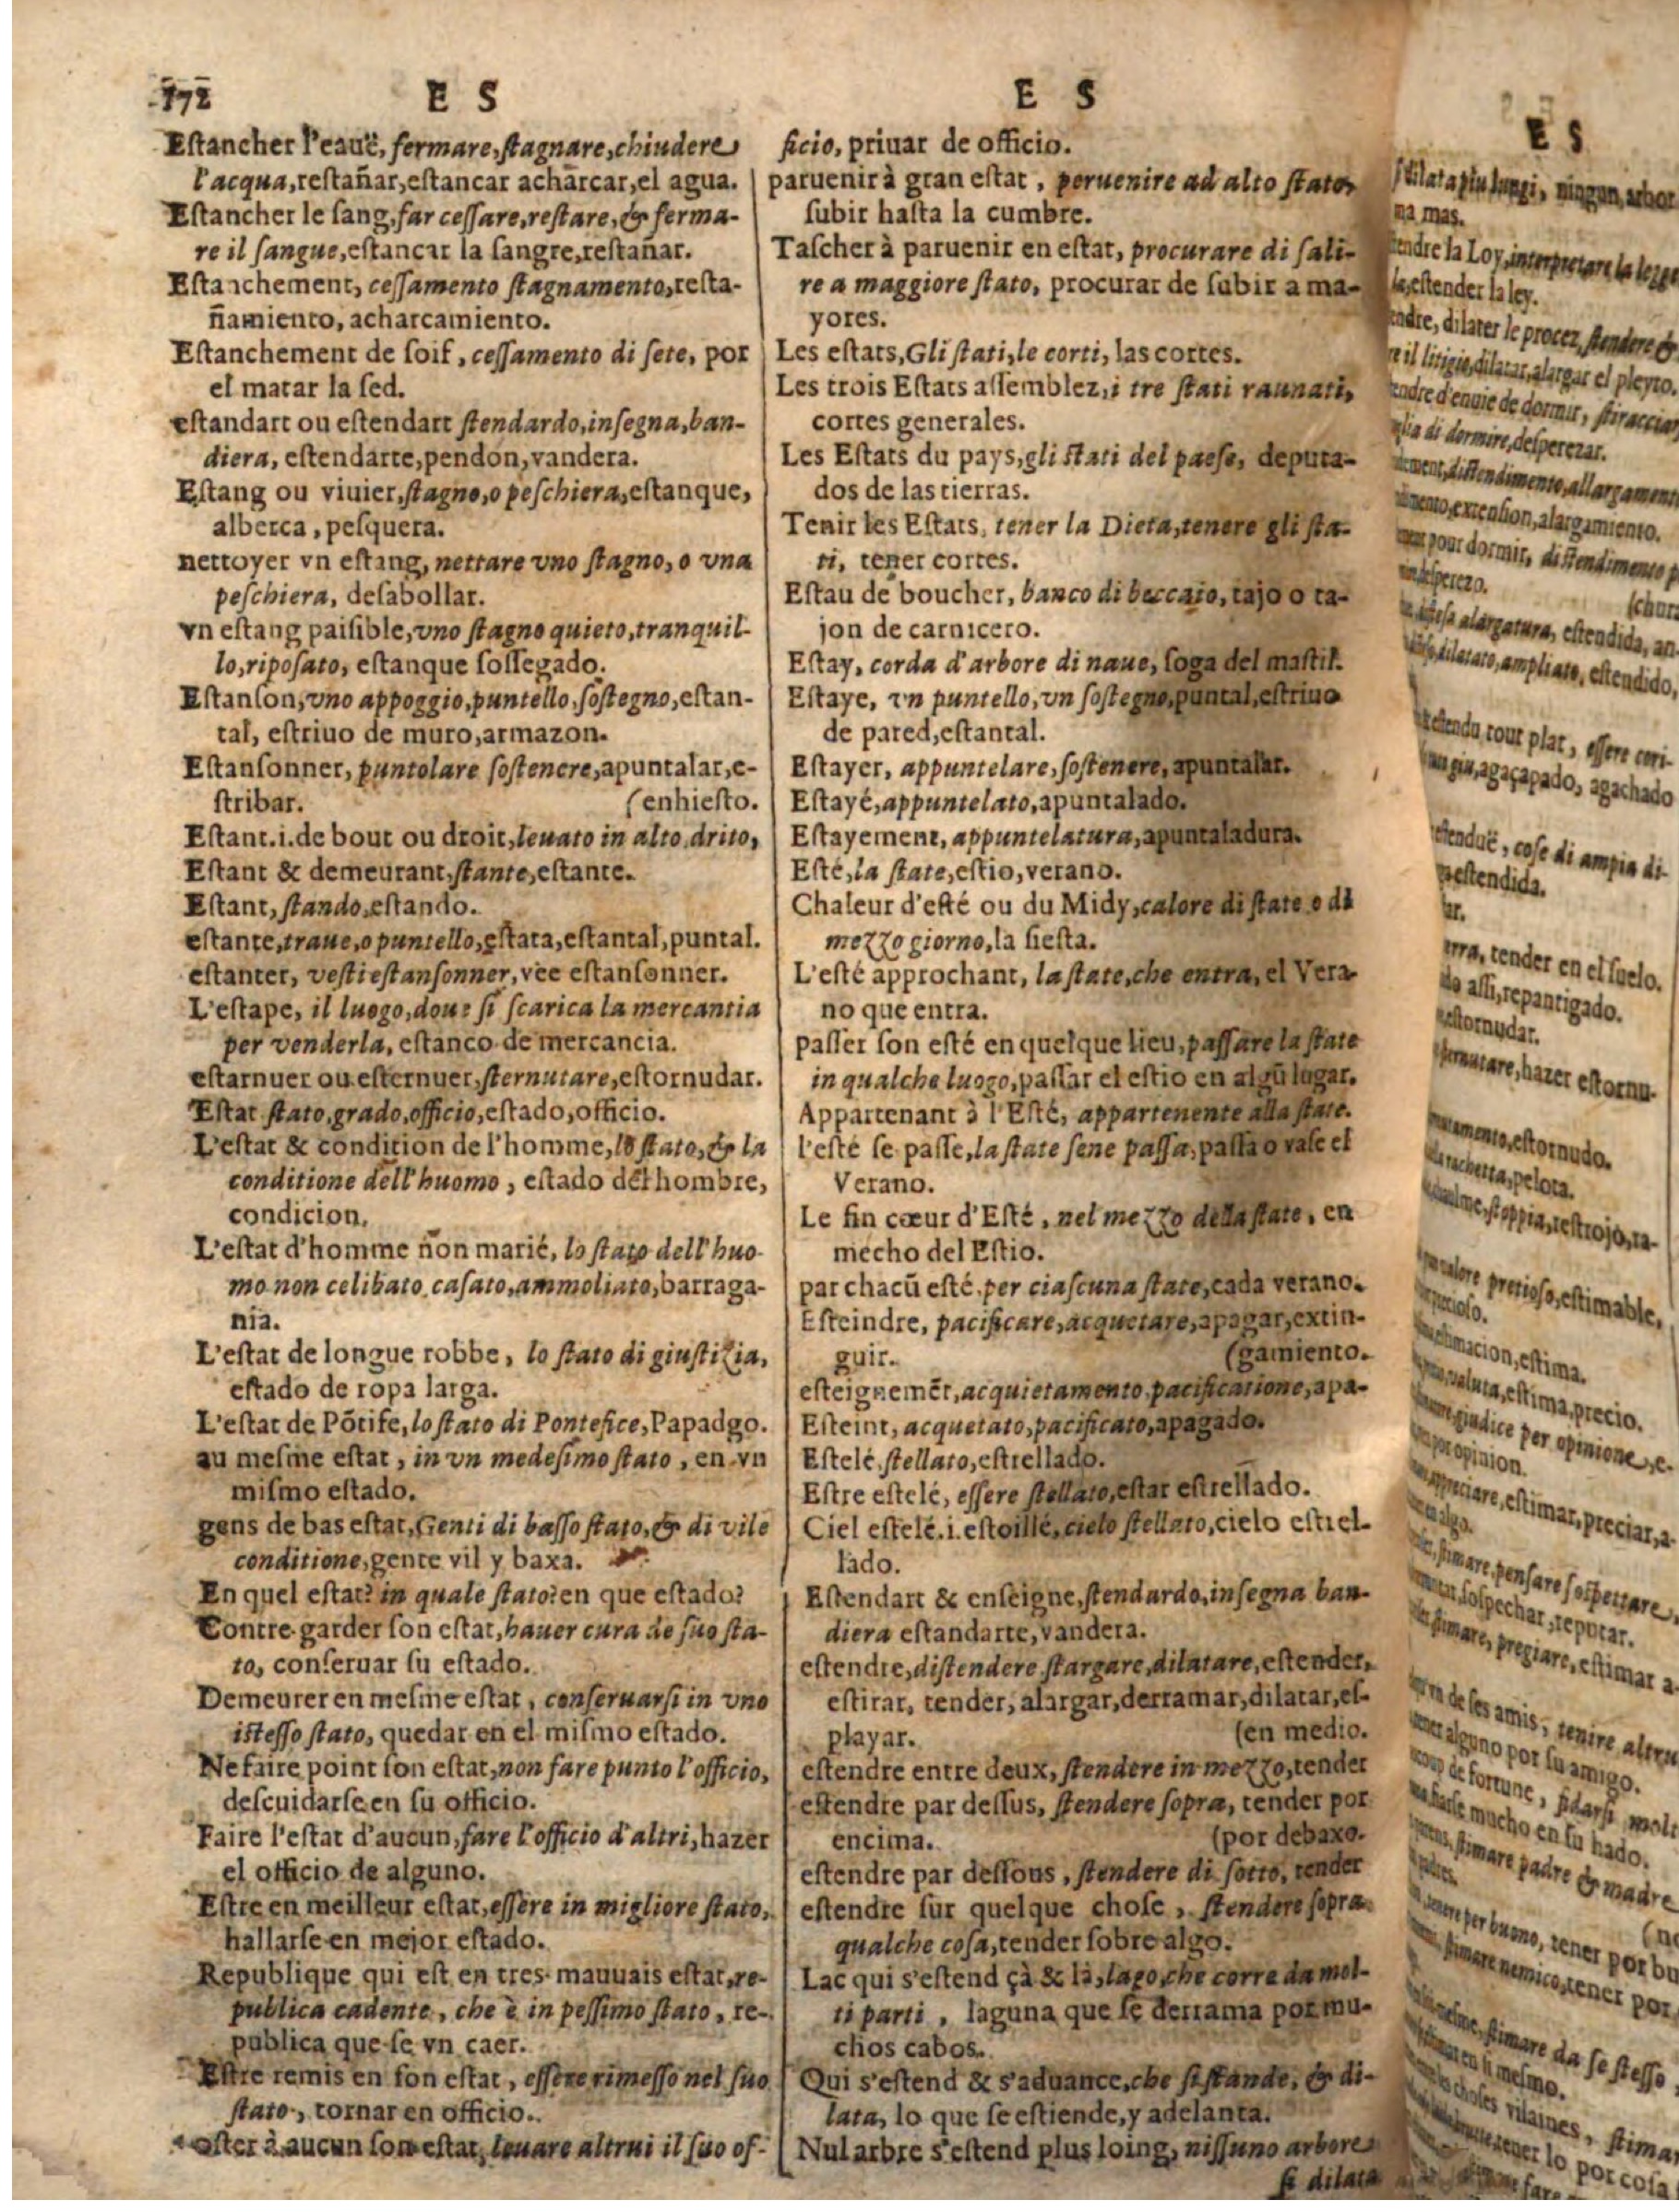 172
E S
Eſtancher l'eauë, fermare, ſtagnare, chiudere
l'acqua, reſtañar, eſtancar achārcar, el agua.
Eſtancher le ſang, far ceſſare, reſtare, & ferma-
re il ſangue, eſtancar la ſangre, reſtañar.
Eſtanchement, ceſſamento ſtagnamento, reſta-
ñamiento, acharcamiento.
Eſtanchement de ſoif, ceſſamento di ſete, por
el matar la ſed.
eſtandart ou eſtendart ſtendardo, inſegna, ban-
diera, eſtendarte, pendon, vandera.
Eſtang ou viuier, ſtagno, o peſchiera, eſtanque,
alberca, peſquera.
nettoyer vn eſtang, nettare vno ſtagno, o vna
peſchiera, deſabollar.
vn eſtang paiſible, vno ſtagno quieto, tranquil-
lo, ripoſato, eſtanque ſoſſegado.
Eſtanſon, vno appoggio, puntello, ſoſtegno, eſtan-
tal, eſtriuo de muro, armazon.
Eſtanſonner, puntolare ſoſtenere, apuntalar, e-
ſtribar. (enhieſto.
Eſtant. i. de bout ou droit, leuato in alto drito,
Eſtant & demeurant, ſtante, eſtante.
Eſtant, ſtando, eſtando.
eſtante, traue, o puntello, eſtata, eſtantal, puntal.
eſtanter, veſti eſtanſonner, vee eſtanſonner.
L'eſtape, il luogo, doue ſi ſcarica la mercantia
per venderla, eſtanco de mercancia.
eſtarnuer ou eſternuer, ſternutare, eſtornudar.
Eſtat ſtato, grado, officio, eſtado, officio.
L'eſtat & condition de l'homme, lo ſtato, & la
conditione dell'huomo, eſtado del hombre,
condicion.
L'eſtat d'homme non marié, lo ſtato dell'huo-
mo non celibato caſato, ammoliato, barraga-
nia.
L'eſtat de longue robbe, lo ſtato di giuſtizia,
eſtado de ropa larga.
L'eſtat de Pōtife, lo ſtato di Pontefice, Papadgo.
au meſme eſtat, in vn medeſimo ſtato, en vn
miſmo eſtado.
gens de bas eſtat, Genti di baſſo ſtato, & di vile
conditione, gente vil y baxa.
En quel eſtat? in quale ſtato? en que eſtado?
Contre-garder ſon eſtat, hauer cura de ſuo ſta-
to, conſeruar ſu eſtado.
Demeurer en meſme eſtat, conſeruarſi in vno
iſteſſo ſtato, quedar en el miſmo eſtado.
Ne faire point ſon eſtat, non fare punto l'officio,
deſcuidarſe en ſu officio.
Faire l'eſtat d'aucun, fare l'officio d'altri, hazer
el officio de alguno.
Eſtre en meilleur eſtat, eſſere in migliore ſtato,
hallarſe en mejor eſtado.
Republique qui eſt en tres-mauuais eſtat, re-
publica cadente, che è in peſſimo ſtato, re-
publica que ſe vn caer.
Eſtre remis en ſon eſtat, eſſere rimeſſo nel ſuo
ſtato, tornar en officio.
oſter à aucun ſon eſtat, leuare altrui il ſuo of-
E S
ficio, priuar de officio.
paruenir à gran eſtat, peruenire ad alto ſtato,
ſubir haſta la cumbre.
Taſcher à paruenir en eſtat, procurare di ſali-
re a maggiore ſtato, procurar de ſubir a ma-
yores.
Les eſtats, Gli ſtati, le corti, las cortes.
Les trois Eſtats aſſemblez, i tre ſtati raunati,
cortes generales.
Les Eſtats du pays, gli ſtati del paeſe, deputa-
dos de las tierras.
Tenir les Eſtats, tener la Dieta, tenere gli ſta-
ti, tener cortes.
Eſtau de boucher, banco di beccaio, tajo o ta-
jon de carnicero.
Eſtay, corda d'arbore di naue, ſoga del maſtil.
Eſtaye, vn puntello, vn ſoſtegno, puntal, eſtriuo
de pared, eſtantal.
Eſtayer, appuntelare, ſoſtenere, apuntalar.
Eſtayé, appuntelato, apuntalado.
Eſtayement, appuntelatura, apuntaladura.
Eſté, la ſtate, eſtio, verano.
Chaleur d'eſté ou du Midy, calore di ſtate o di
mezzo giorno, la ſieſta.
L'eſté approchant, la ſtate, che entra, el Vera-
no que entra.
paſſer ſon eſté en quelque lieu, paſſare la ſtate
in qualche luogo, paſſar el eſtio en algũ lugar.
Appartenant à l'Eſté, appartenente alla ſtate.
l'eſté ſe paſſe, la ſtate ſene paſſa, paſſa o vaſe el
Verano.
Le fin cœur d'Eſté, nel mezzo della ſtate, en
mecho del Eſtio.
par chacũ eſté, per ciaſcuna ſtate, cada verano.
Eſteindre, pacificare, acquetare, apagar, extin-
guir. (gamiento.
eſteignemēt, acquietamento pacificatione, apa-
Eſteint, acquetato, pacificato, apagado.
Eſtelé, ſtellato, eſtrellado.
Eſtre eſtelé, eſſere ſtellato, eſtar eſtrellado.
Ciel eſtelé. i. eſtoillé, cielo ſtellato, cielo eſtrel-
lado.
Eſtendart & enſeigne, ſtendardo, inſegna ban-
diera eſtandarte, vandera.
eſtendre, diſtendere ſtargare, dilatare, eſtender,
eſtirar, tender, alargar, derramar, dilatar, eſ-
playar. (en medio.
eſtendre entre deux, ſtendere in mezzo, tender
eſtendre par deſſus, ſtendere ſopra, tender por
encima. (por debaxo.
eſtendre par deſſous, ſtendere di ſotto, tender
eſtendre ſur quelque choſe, ſtendere ſopra
qualche coſa, tender ſobre algo.
Lac qui s'eſtend çà & là, lago, che corre da mol-
ti parti, laguna que ſe derrama por mu-
chos cabos.
Qui s'eſtend & s'aduance, che ſi ſtande, & di-
lata, lo que ſe eſtiende, y adelanta.
Nul arbre s'eſtend plus loing, niſſuno arbore
ſi dilata
E S
ſi dilata piu lungi, ningun arbor
na mas.
la Loy, interpretare la legge
eſtender la ley.
dilater le procez, ſtendere &
il litigio, dilatar, alargar el pleyto.
d'enuie de dormir, ſtiracciar
di dormire, deſperezar.
diſtendimento, allargamento
extenſion, alargamiento.
pour dormir, diſtendimento
alargatura, eſtendida, an-
dilatato, ampliato, eſtendido,
tout plat, eſſere cori-
agaçapado, agachado
coſe di ampia di-
eſtendida.
tender en el ſuelo.
aſſi, repantigado.
eſtornudar.
hazer eſtornu-
eſtornudo.
rachetta, pelota.
ſtoppia, reſtrojo, ra-
pretioſo, eſtimable,
eſtima.
valuta, eſtima, precio.
giudice per opinione, e-
por opinion.
eſtimar, preciar, a-
algo.
ſtimare, penſare ſoſpettare,
ſoſpechar, reputar.
ſtimare, pregiare, eſtimar a
de ſes amis, tenire altru
alguno por ſu amigo.
de fortune, fidarſi molt
mucho en ſu hado.
ſtimare padre & madre
per buono, tener por bu
ſtimare nemico, tener por
ſtimare da ſe ſteſſo,
en ſi meſmo.
choſes vilaines, ſtima
tener lo por coſa